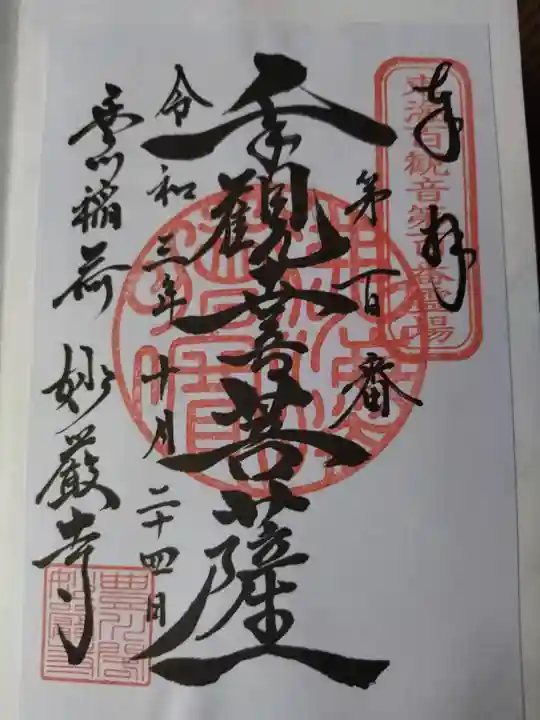 東海百観音第百番霊場
奉拝
第百番
千手觀音菩薩
令和三年十月二十四日
豊川稲荷 妙厳寺